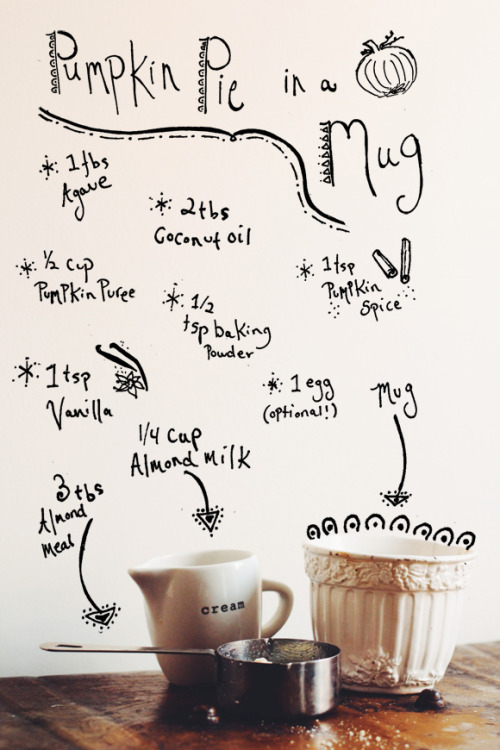 Pumpkin Pie in a
Mug
1 tbs
Agave
2 tbs
Coconut oil
1/2 cup
Pumpkin Puree
1 tsp
Pumpkin
Spice
1/2
tsp baking
Powder
1 tsp
Vanilla
1 egg
(optional!)
Mug
1/4 cup
Almond Milk
3 tbs
Almond
Meal
cream